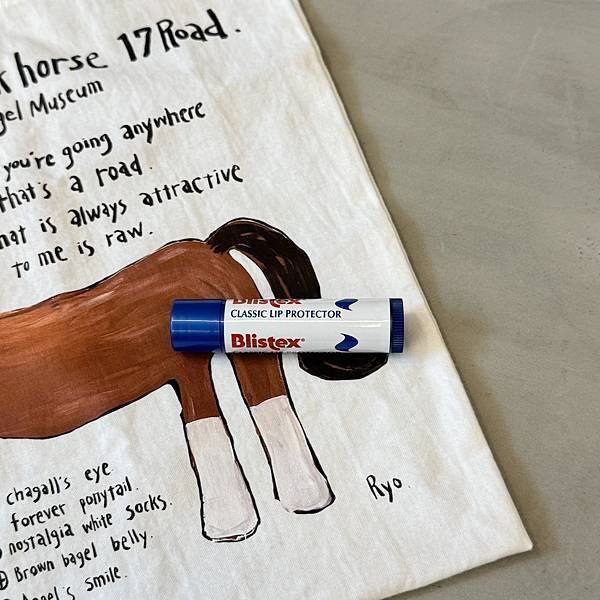 horse 17 Road.
Museum
you're going anywhere
that's a road.
is always attractive
to me is raw.
Blistex
CLASSIC LIP PROTECTOR
Blistex®
chagall's eye.
forever ponytail.
nostalgia white socks.
Brown bagel belly.
smile.
Ryo.